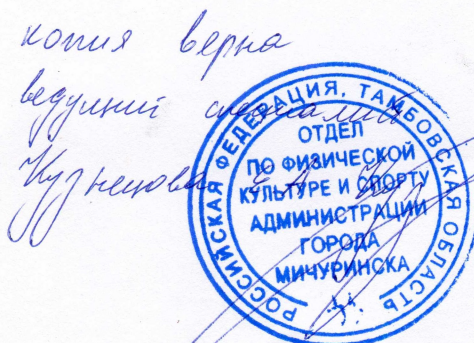 копия верна
ведущий специалист
Кузнецова Е.А.
РОССИЙСКАЯ ФЕДЕРАЦИЯ, ТАМБОВСКАЯ ОБЛАСТЬ
ОТДЕЛ
ПО ФИЗИЧЕСКОЙ
КУЛЬТУРЕ И СПОРТУ
АДМИНИСТРАЦИИ
ГОРОДА
МИЧУРИНСКА